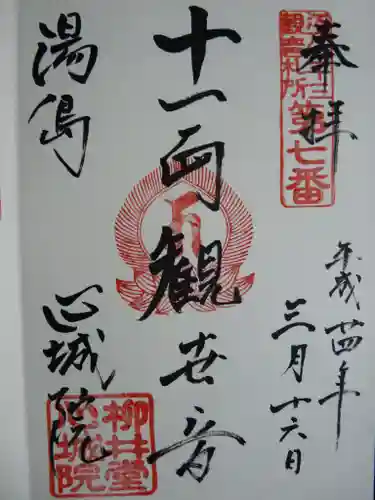 奉拝
江戸三十三
観音札所
第七番
平成廿四年
三月十六日
十一面観世音
湯島
心城院
柳井堂
心城院